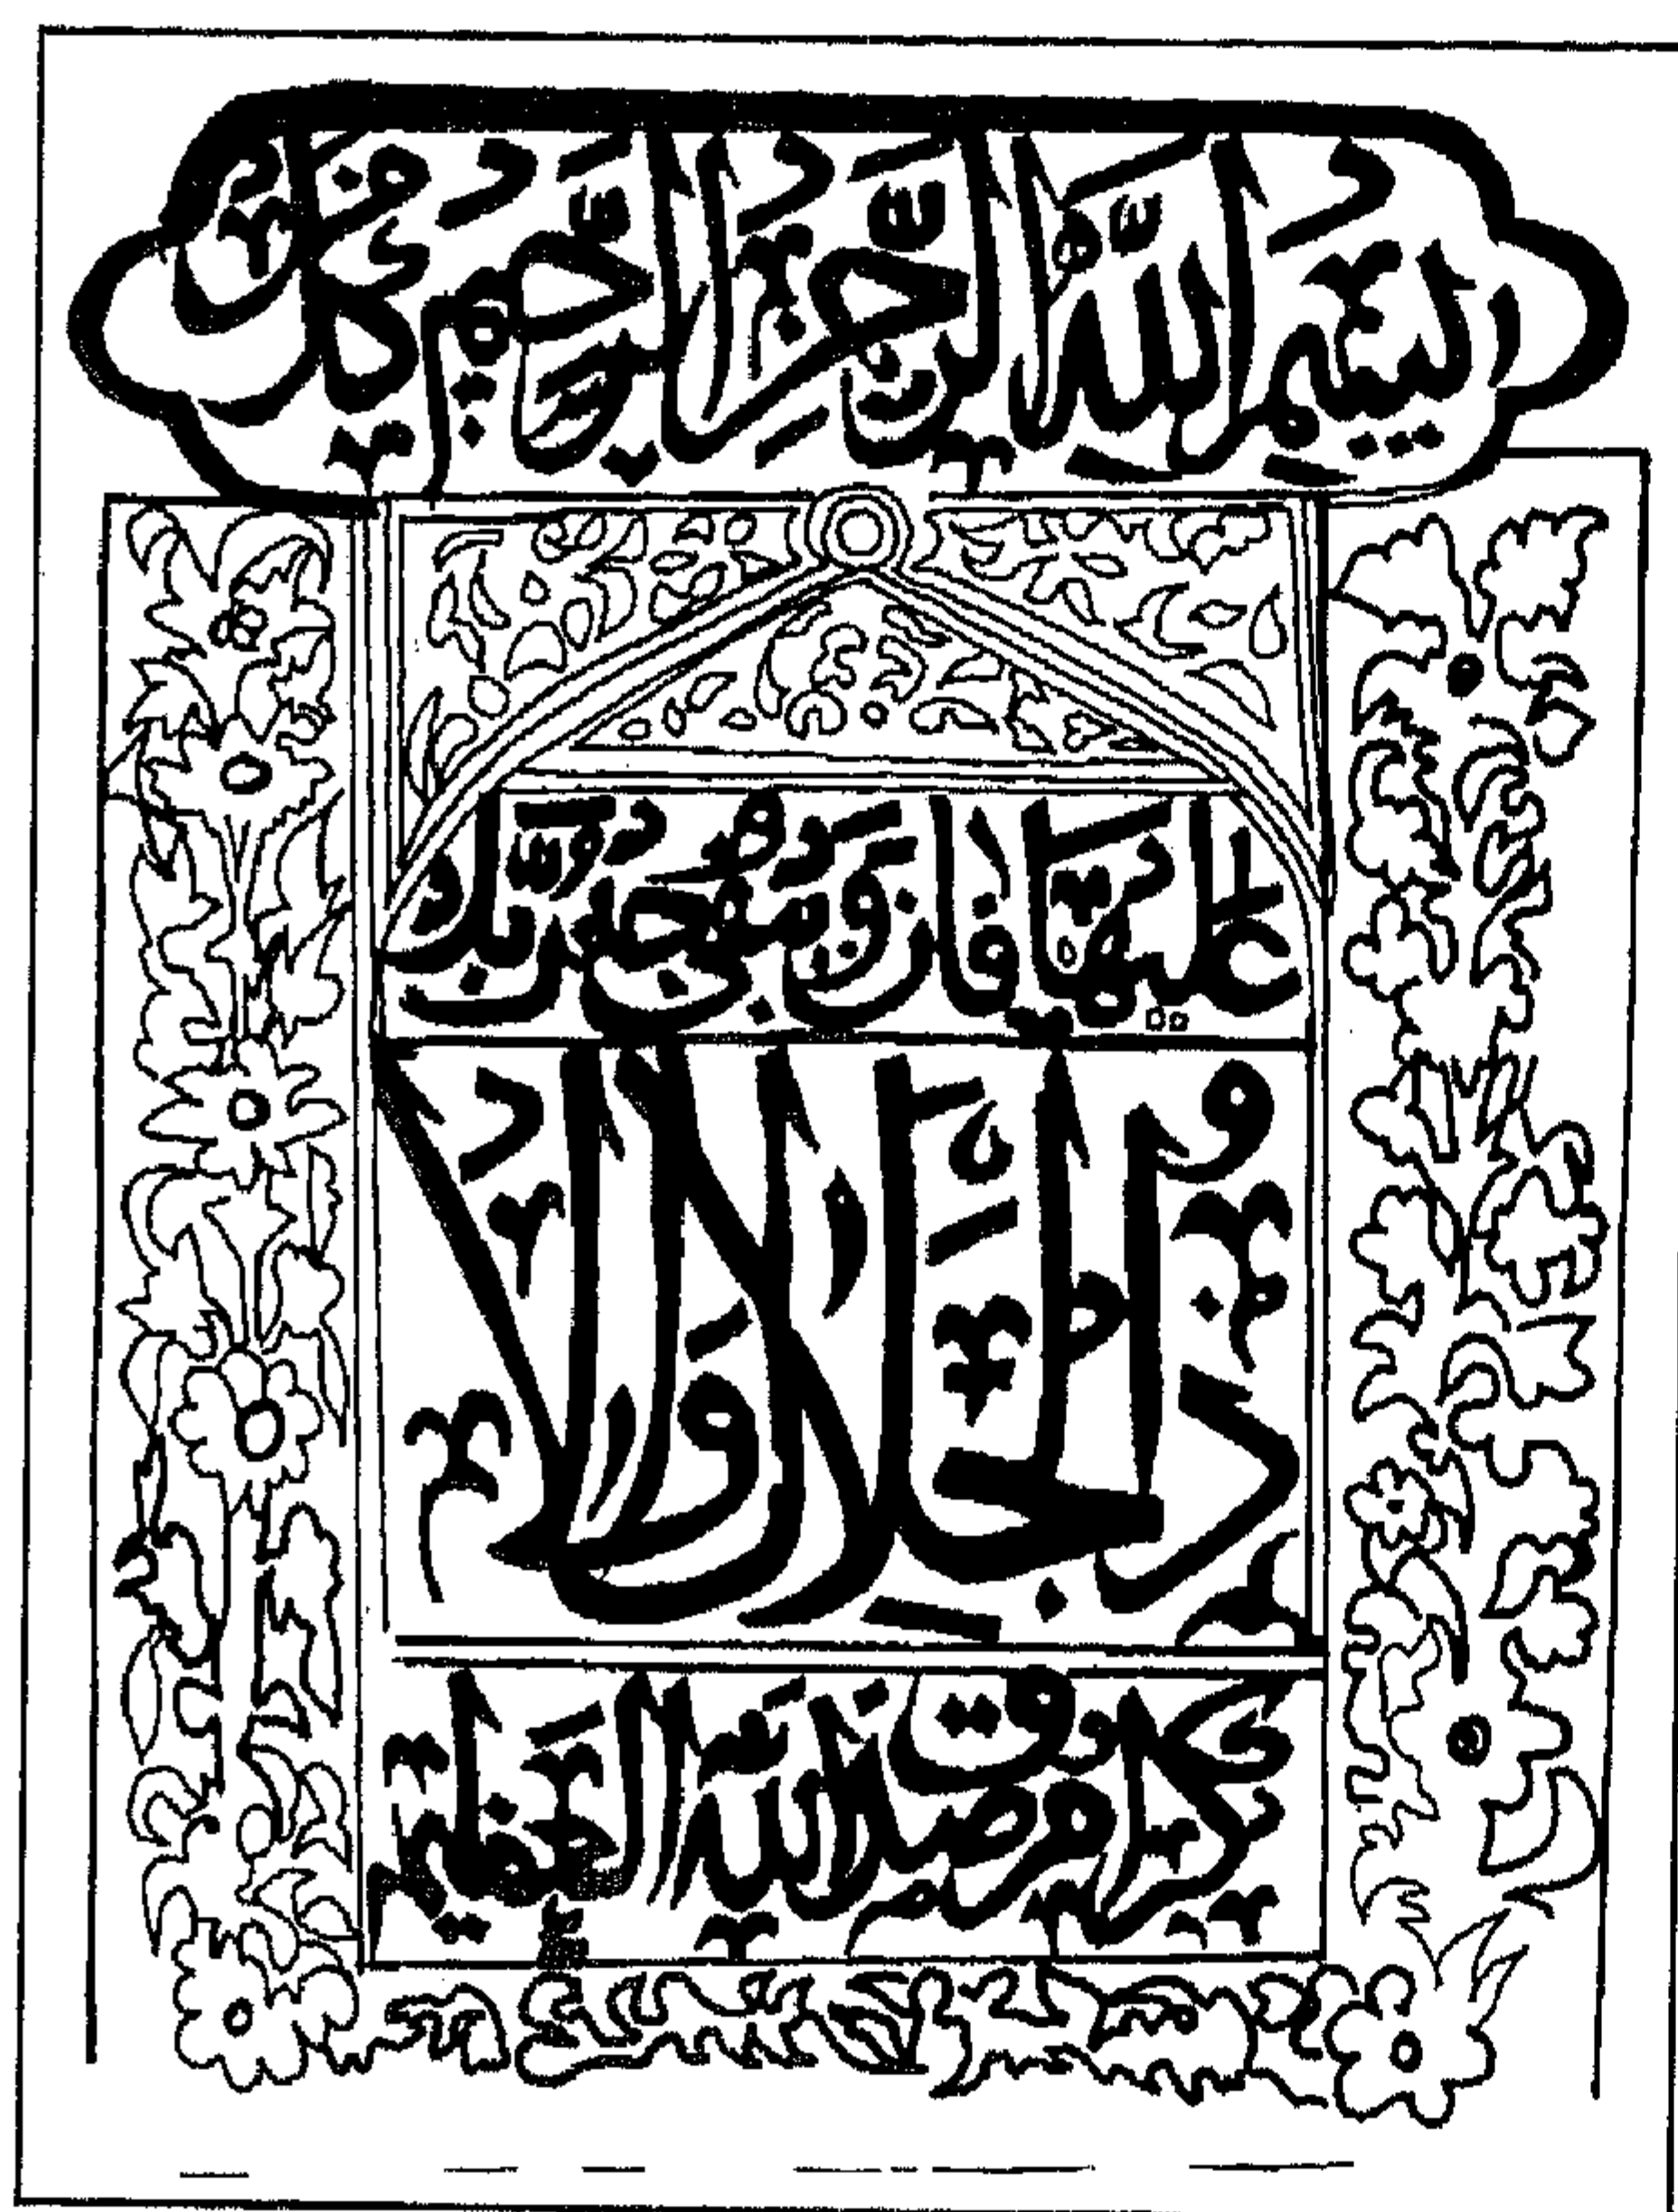 بِسْمِ اللهِ الرَّحْمٰنِ الرَّحِيْمِ كُلُّ مَنْ
عَلَيْهَا فَانٍ وَيَبْقَى وَجْهُ رَبِّكَ
ذُو الْجَلَالِ وَالْاِ
كْرَامِ صَدَقَ اللهُ الْعَظِيْمُ